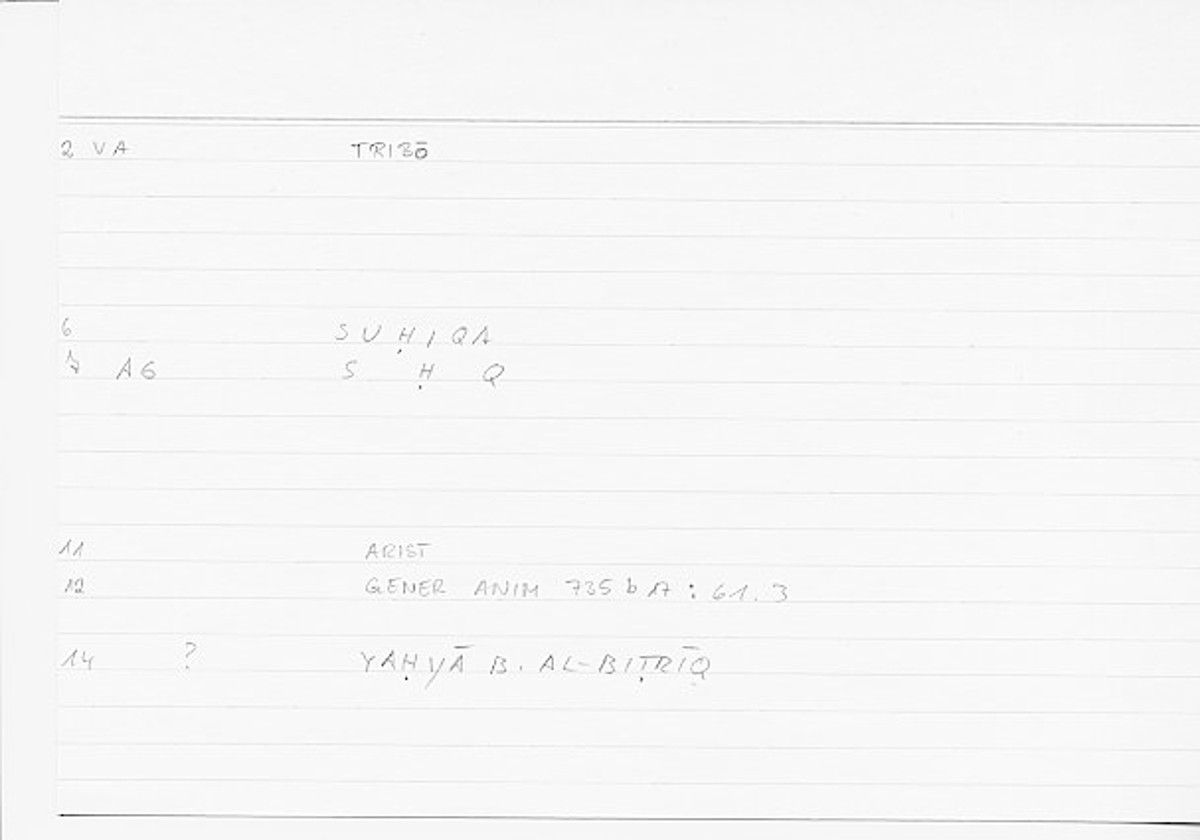 2 VA TRIBŌ
6 SUḤIQA
7 AG S Ḥ Q
11 ARIST
12 GENER ANIM 735 b 17 : 61. 3
14 ? YAḤYĀ B. AL-BIṬRĪQ